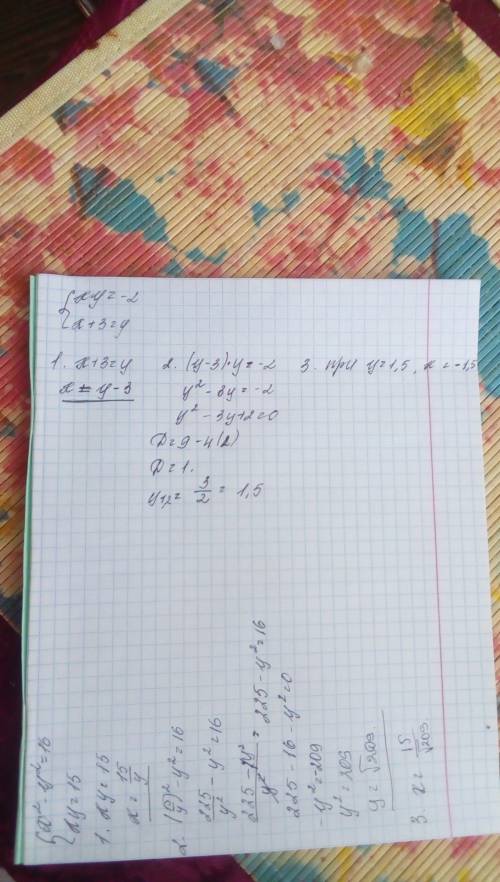 {xy = -2
{x+3=y
1. x+3=y
x = y-3
2. (y-3)·y=-2
y²-3y=-2
y²-3y+2=0
D=9-4(2)
D=1.
y₁,₂= 3/2 = 1,5
3. при y=1,5, x=-1,5
{x²-y²=16
{xy=15
1. xy=15
x=15/y
2. (15/y)²-y²=16
225/y² - y²=16
225-y²/y² = 225-y²=16
225-16-y²=0
-y²=-209
y²=209
y=√209
3. x= 15/√209